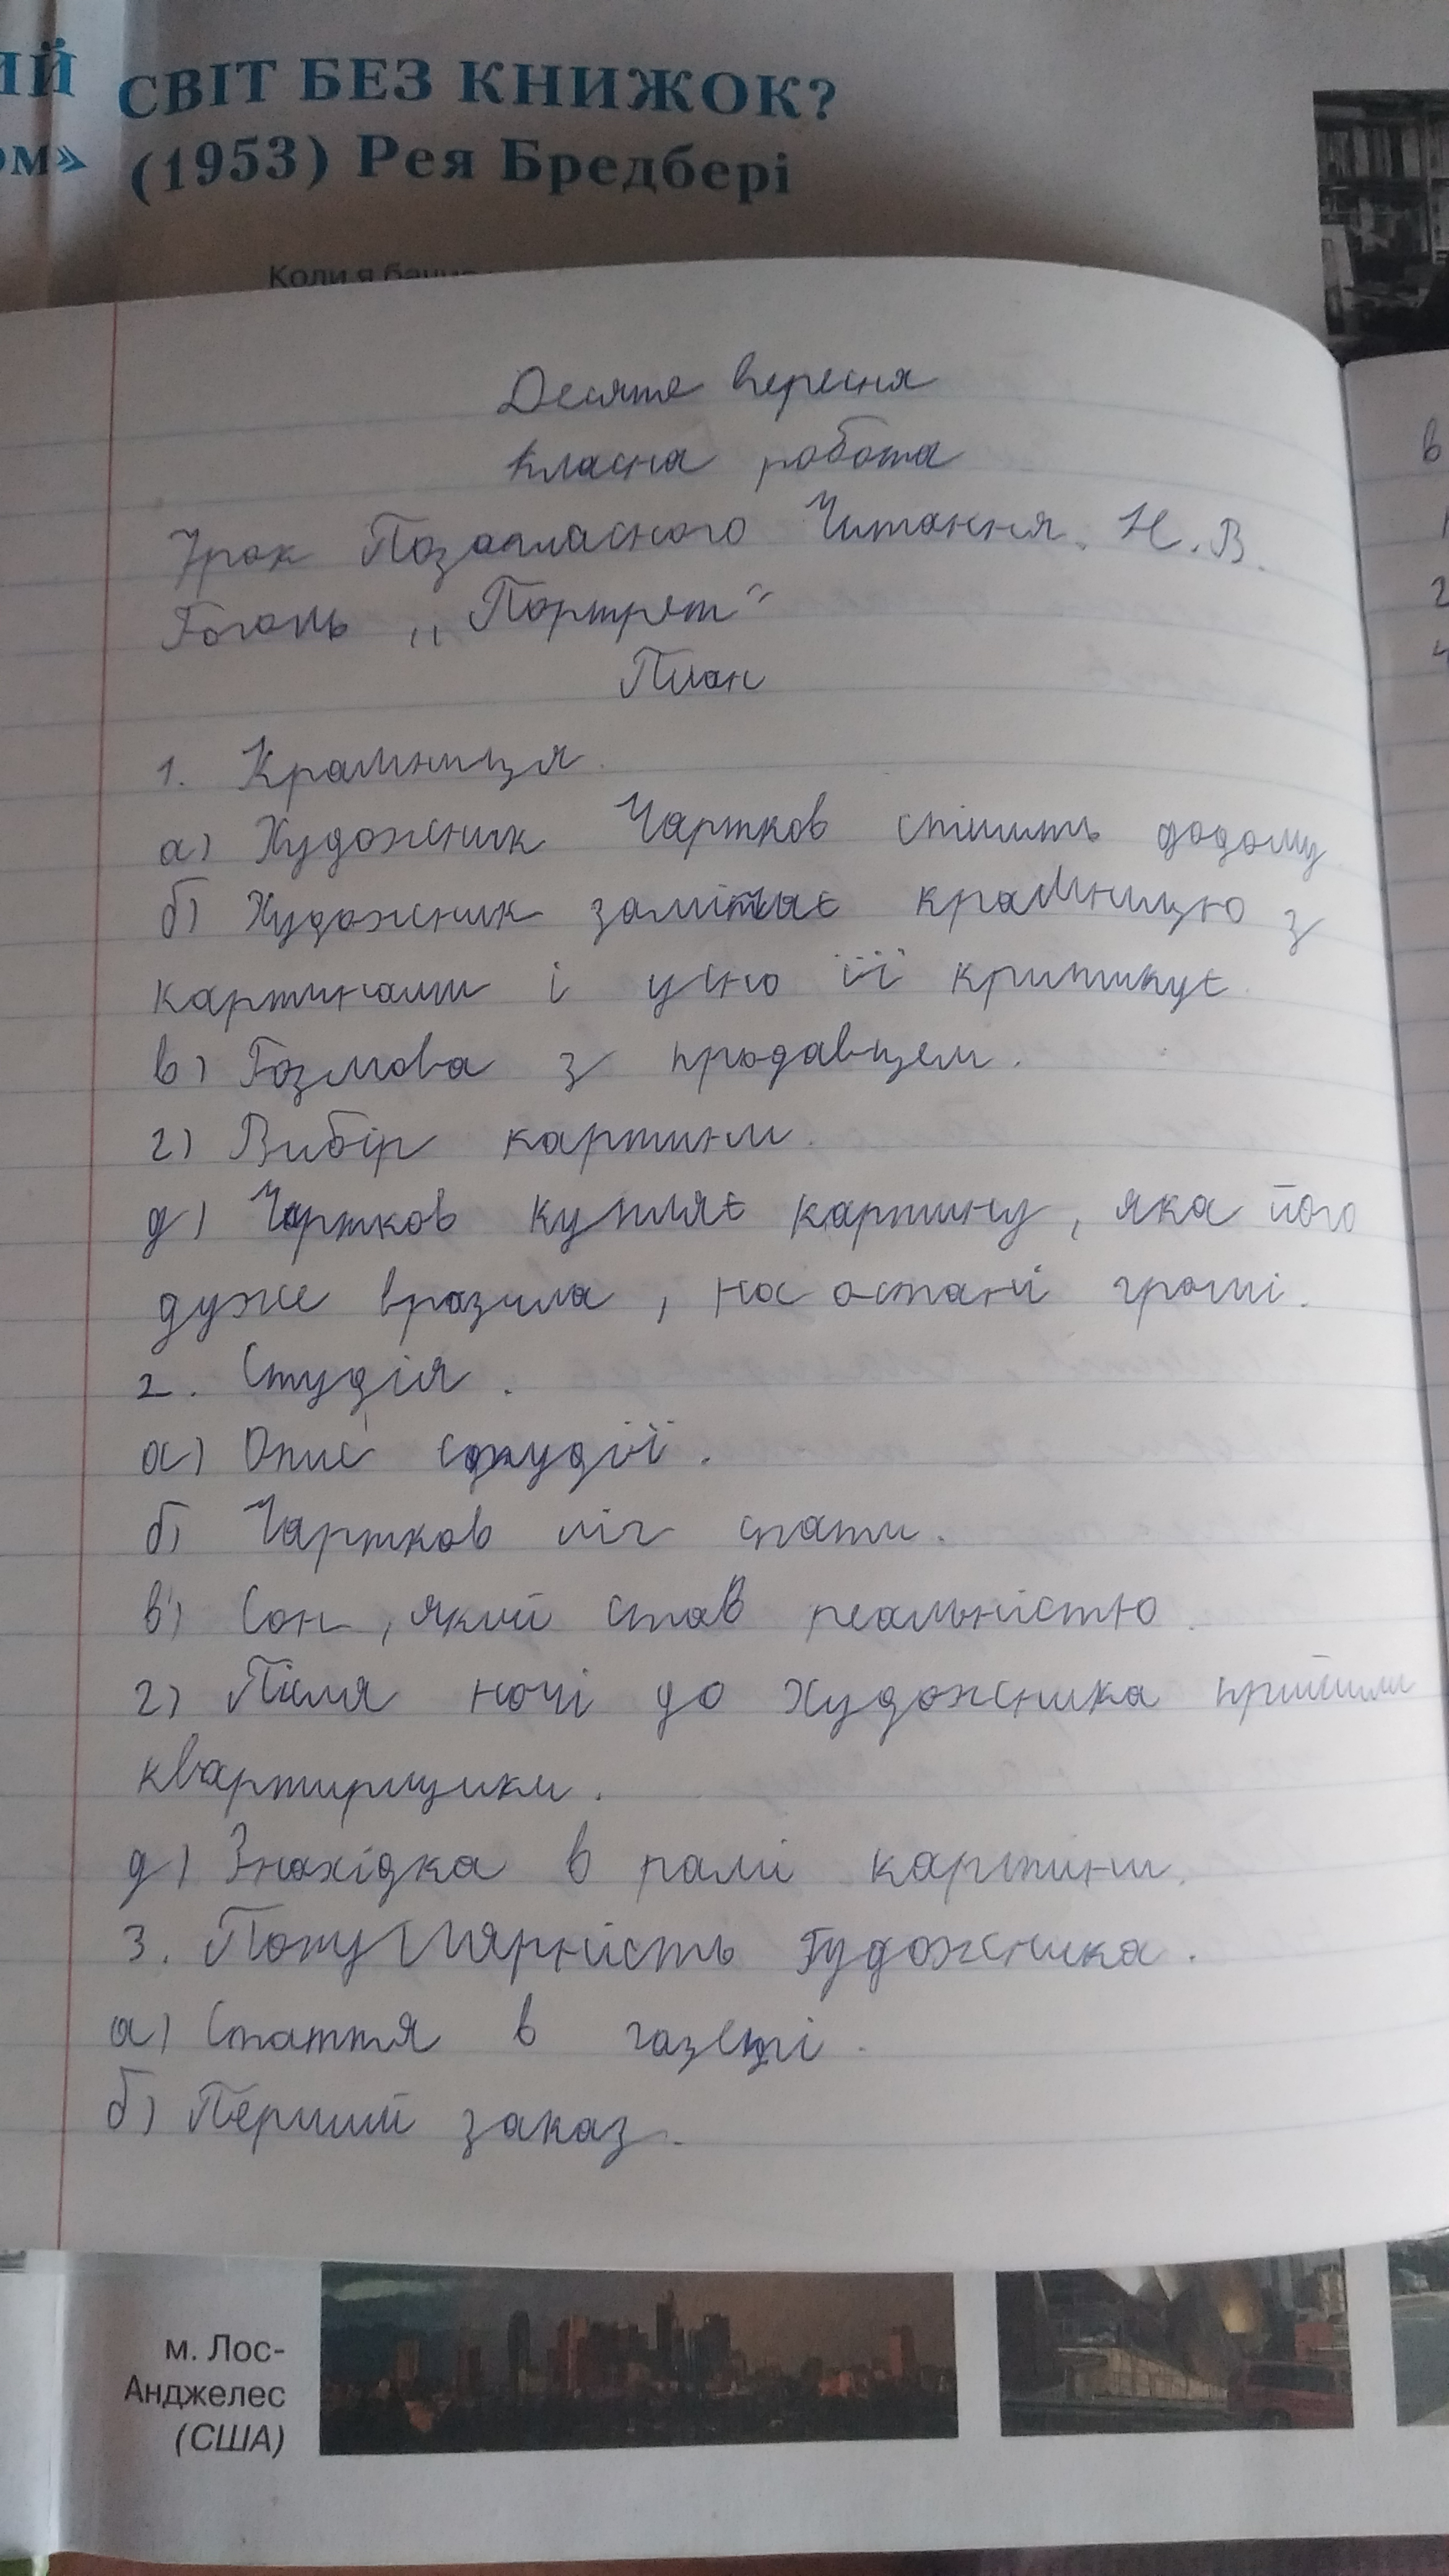 ИЙ СВІТ БЕЗ КНИЖОК?
ом» (1953) Рея Бредбері
Коли я бачив
Десяте вересня
Класна робота
Урок Позакласного Читання. Н.В.
Гоголь „Портрет"
План
1. Крамниця.
а) Художник Чартков спішить додому
б) Художник замічає крамницю з
картинами і усно її критикує
в) Розмова з продавцем.
г) Вибір картини.
д) Чартков купляє картину, яка його
дуже вразила, на остані гроші.
2. Студія.
а) Опис студії.
б) Чартков ліг спати.
в) Сон, який став реальністю.
г) Після ночі до художника прийшли
квартирщики.
д) Знахідка в рамі картини.
3. Популярність художника.
а) Стаття в газеті.
б) Перший заказ.
м. Лос-
Анджелес
(США)